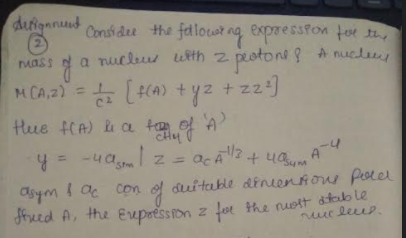 Assignment Consider the following expression for the
② mass of a nucleus with z protons & A nucleus
M(A,z) = 1/c² [f(A) + yz + zz²]
Hue f(A) is a of 'A'
y = -4asym | z = ac A^-1/2 + 4asym A^-4
asym & ac con of suitable dimensions
fixed A, the Expression z for the most stable
nucleus.